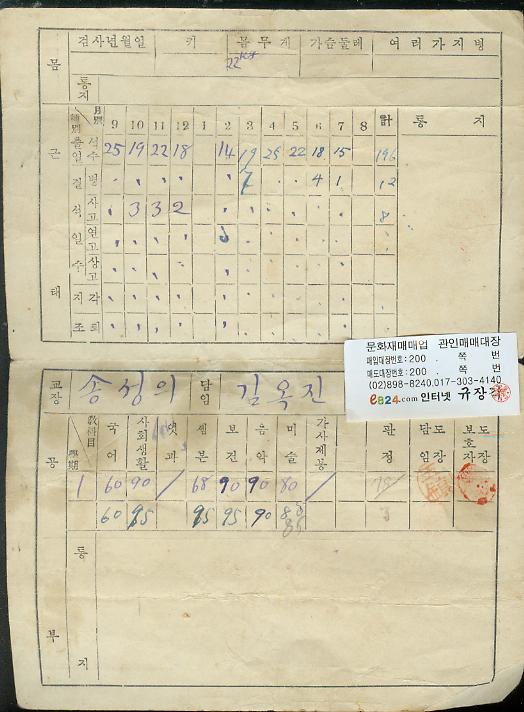 몸
검사년월일 키 몸무게 가슴둘레 여러가지병
22kg
통지
근태
月別 種別 9 10 11 12 1 2 3 4 5 6 7 8 計 통지
출석일수 25 19 22 18 14 19 25 22 18 15 196
결석일수 병 7 4 1 12
사고 3 3 2 8
연고
상고
지각
조퇴
문화재매매업 관인매매대장
매입대장번호:200 . 쪽 번
매도대장번호:200 . 쪽 번
(02)898-8240,017-303-4140
e824.com 인터넷 규장각
교장 송성의 담임 김옥진
공부
敎科目 學期 국어 사회생활 셈본 보건 음악 미술 가사재봉 판정 담임도장 보호자도장
1 60 90 / 68 90 90 80 / 78
60 95 95 95 90 85
통지